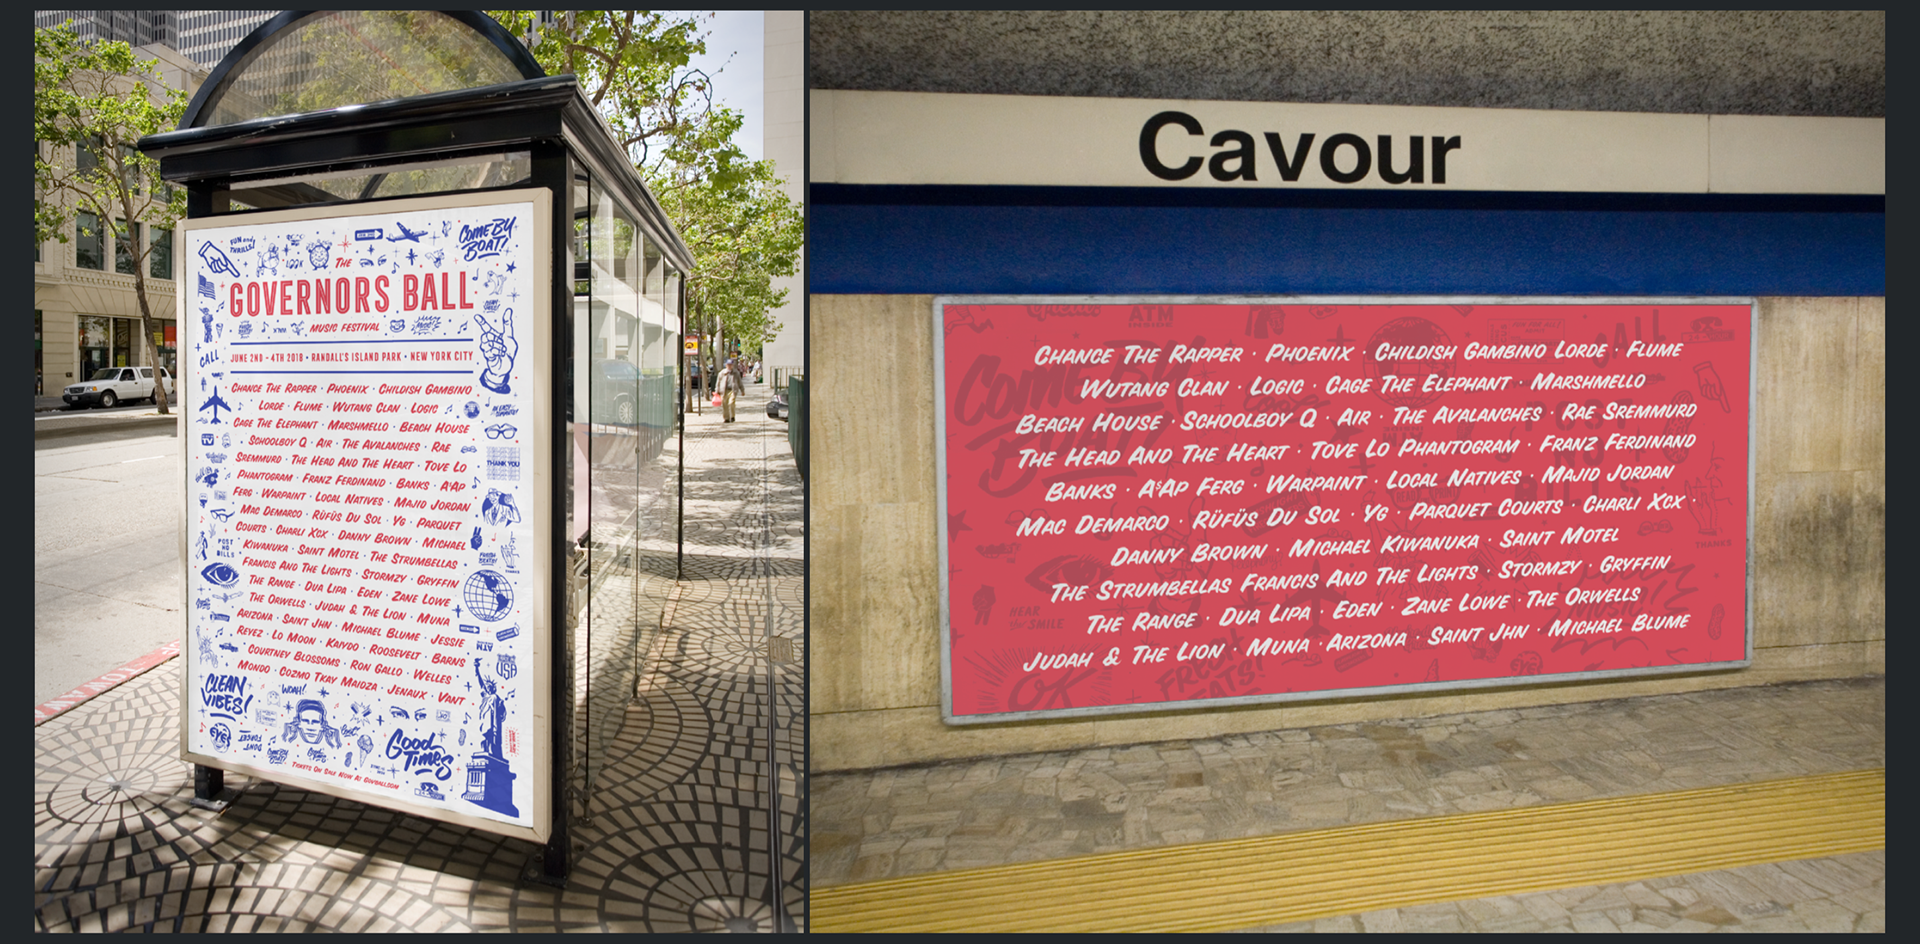 FUN and THRILLS!
COME BY BOAT!
THE
GOVERNORS BALL
MUSIC FESTIVAL
CALL
JUNE 2ND - 4TH 2018 • RANDALL'S ISLAND PARK • NEW YORK CITY
CHANCE THE RAPPER · PHOENIX · CHILDISH GAMBINO
LORDE · FLUME · WUTANG CLAN · LOGIC
CAGE THE ELEPHANT · MARSHMELLO · BEACH HOUSE
SCHOOLBOY Q · AIR · THE AVALANCHES · RAE
SREMMURD · THE HEAD AND THE HEART · TOVE LO
PHANTOGRAM · FRANZ FERDINAND · BANKS · A$AP
FERG · WARPAINT · LOCAL NATIVES · MAJID JORDAN
MAC DEMARCO · RÜFÜS DU SOL · YG · PARQUET
COURTS · CHARLI XCX · DANNY BROWN · MICHAEL
KIWANUKA · SAINT MOTEL · THE STRUMBELLAS
FRANCIS AND THE LIGHTS · STORMZY · GRYFFIN
THE RANGE · DUA LIPA · EDEN · ZANE LOWE
THE ORWELLS · JUDAH & THE LION · MUNA
ARIZONA · SAINT JHN · MICHAEL BLUME · JESSIE
REYEZ · LO MOON · KAIYDO · ROOSEVELT · BARNS
COURTNEY BLOSSOMS · RON GALLO · WELLES
MONDO · COZMO TKAY MAIDZA · JENAUX · VANT
TV
THANK YOU
POST NO BILLS
FRESH BEATS!
THANKS
ATM
USA
CLEAN VIBES!
WOAH!
EYE
DON'T FORGET
Good Times
TICKETS ON SALE NOW AT GOVBALL.COM
Cavour
ATM
ALL
COME BY BOAT!
CHANCE THE RAPPER · PHOENIX · CHILDISH GAMBINO LORDE · FLUME
WUTANG CLAN · LOGIC · CAGE THE ELEPHANT · MARSHMELLO
BEACH HOUSE · SCHOOLBOY Q · AIR · THE AVALANCHES · RAE SREMMURD
THE HEAD AND THE HEART · TOVE LO PHANTOGRAM · FRANZ FERDINAND
BANKS · A$AP FERG · WARPAINT · LOCAL NATIVES · MAJID JORDAN
MAC DEMARCO · RÜFÜS DU SOL · YG · PARQUET COURTS · CHARLI XCX ·
DANNY BROWN · MICHAEL KIWANUKA · SAINT MOTEL
THE STRUMBELLAS FRANCIS AND THE LIGHTS · STORMZY · GRYFFIN
THE RANGE · DUA LIPA · EDEN · ZANE LOWE · THE ORWELLS
JUDAH & THE LION · MUNA · ARIZONA · SAINT JHN · MICHAEL BLUME
POST NO BILLS
THANKS
HEAR the SMILE
OK
FRESH BEATS!
EYE